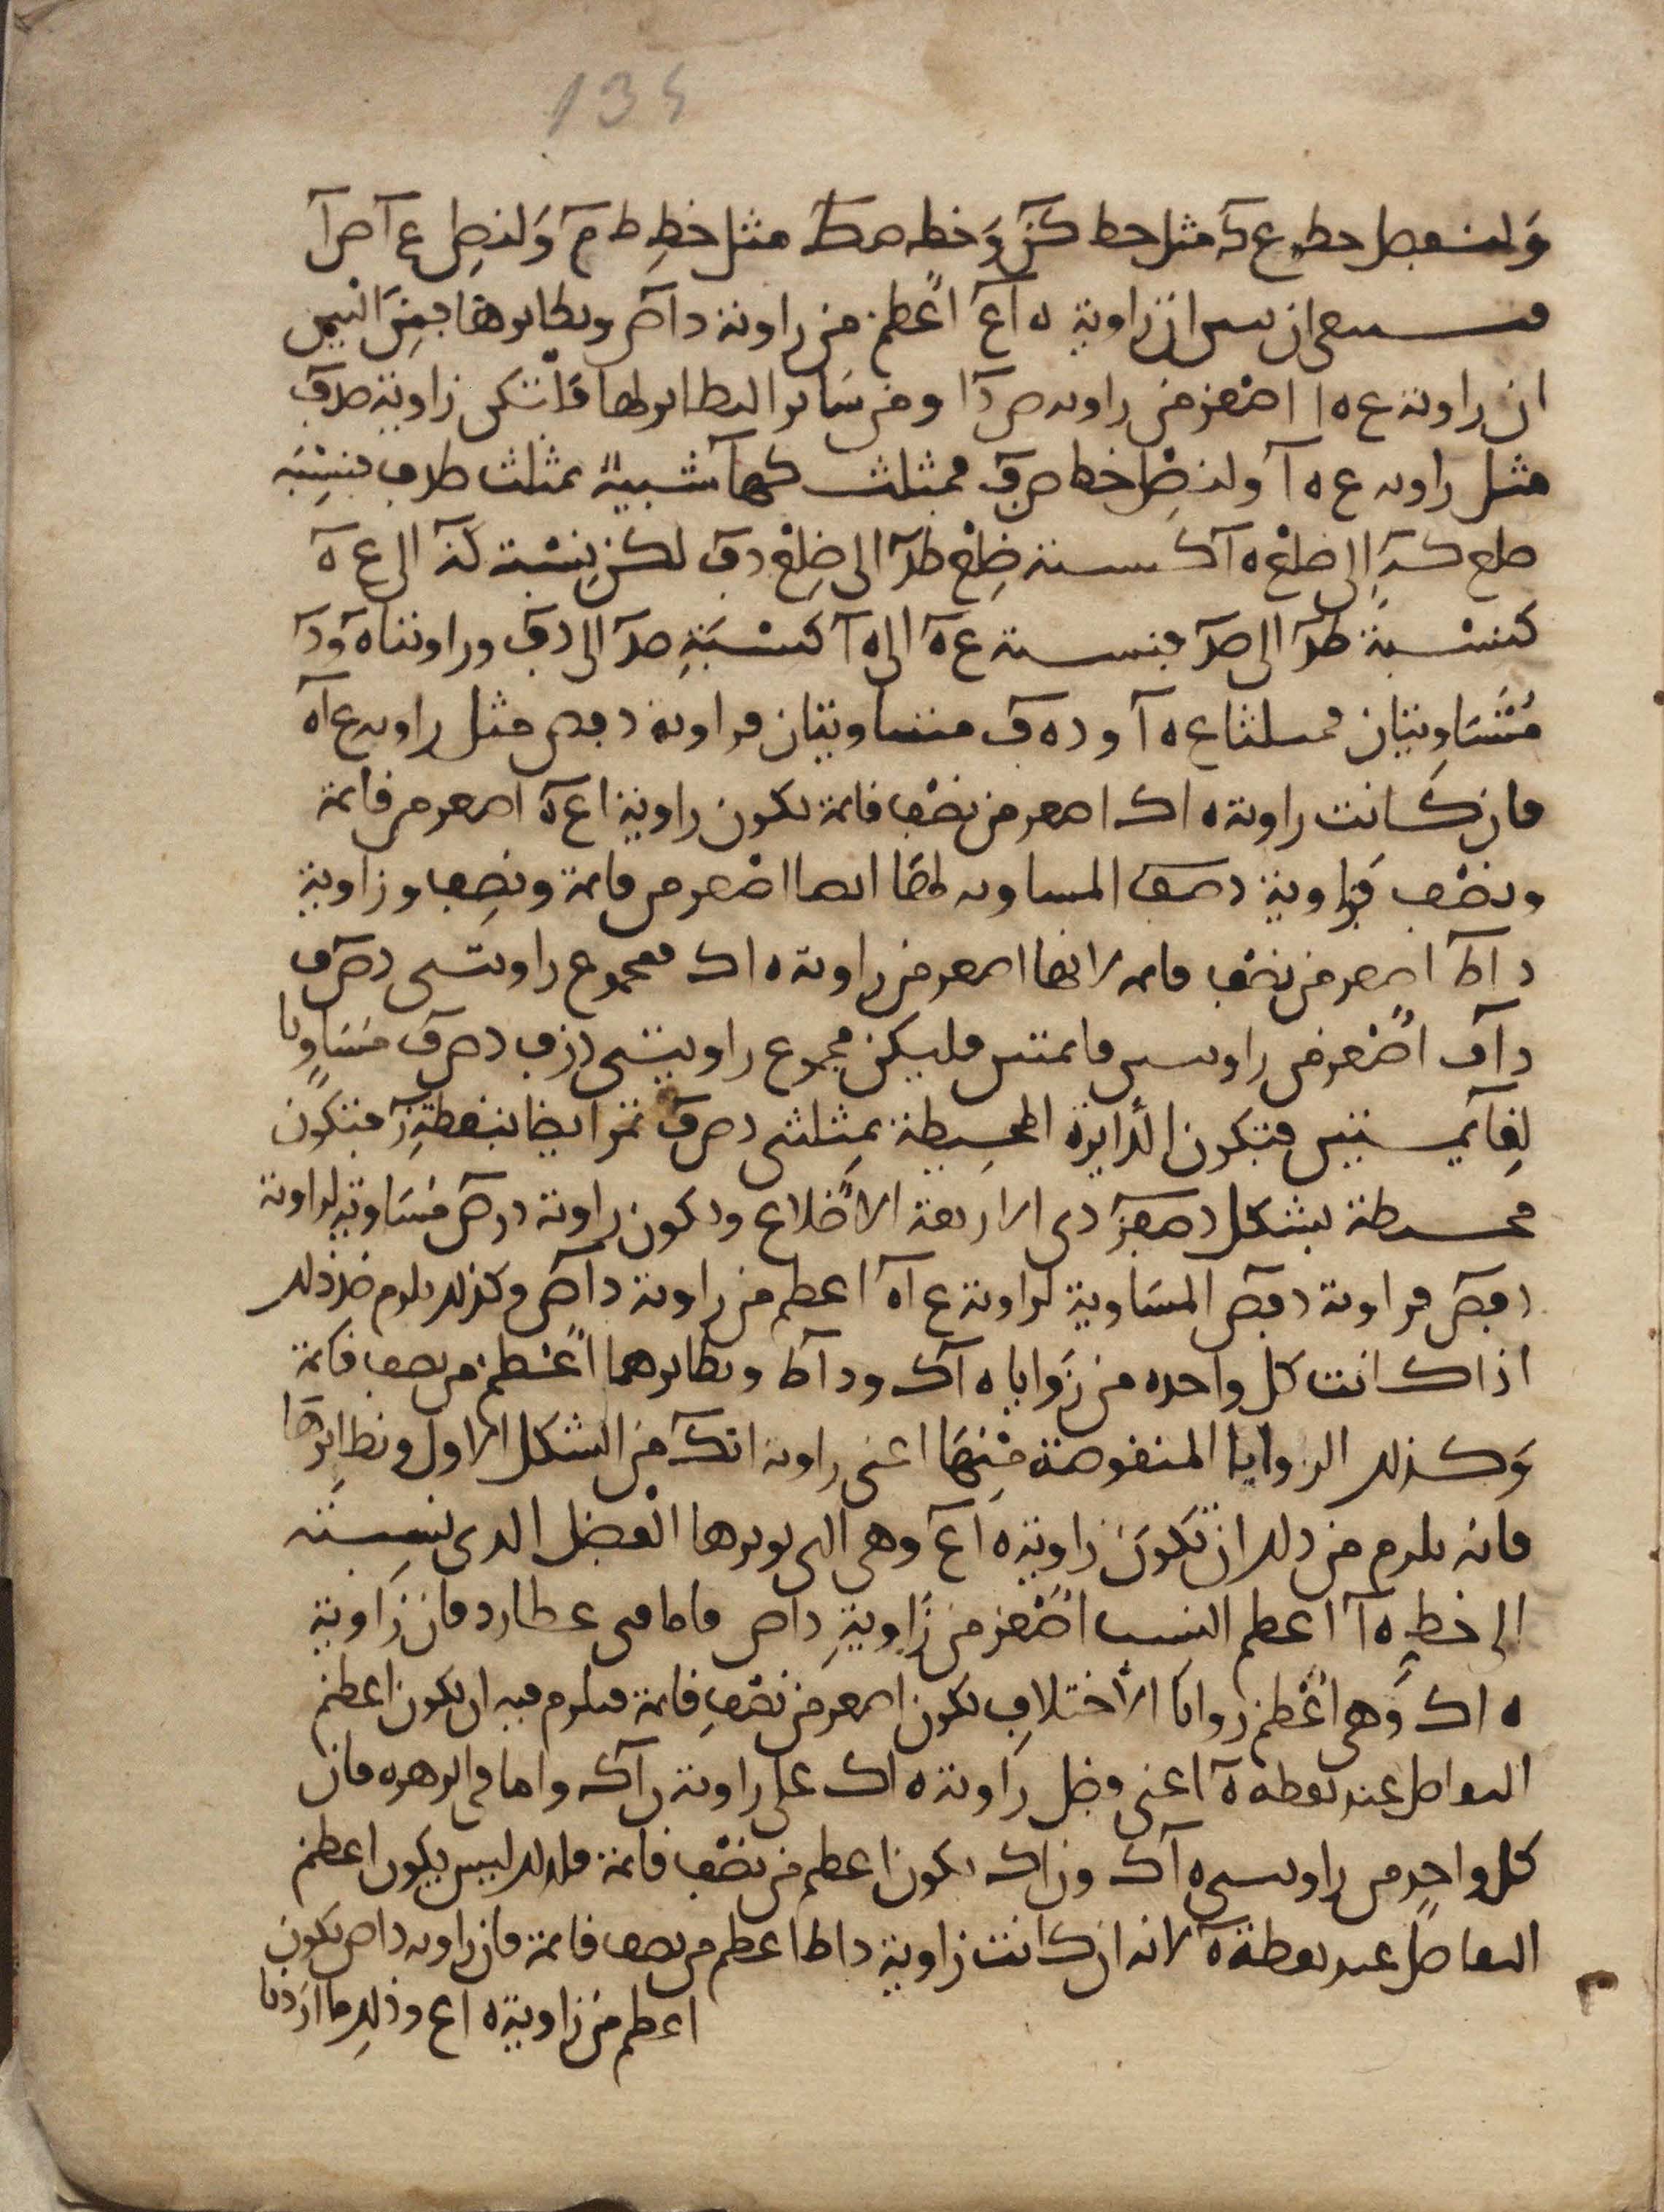 135
ولنفصل خط ع ه مثل خط ك ن وخط ص ط مثل خط ط م ولنصل ع ا ص ا
فينبغي ان نبين ان زاوية ه ا ع اعظم من زاوية د ا ص ونظايرها فمن البين
ان زاوية ع ه ا اصغر من زاوية ص د ا ومن ساير النظاير لها فلتكن زاوية ص د ف
مثل زاوية ع ه ا ولنصل خط ص ف فمثلث ك ه ا شبيه بمثلث ط د ف فنسبة
ضلع ك ه الى ضلع ه ا كنسبة ضلع ط د الى ضلع د ف لكن نسبة ك ه الى ع ه
كنسبة ط د الى ص د فنسبة ع ه الى ه ا كنسبة ص د الى د ف وزاويتا ه و د
متساويتان فمثلثا ع ه ا و د ه ف متساويتان فزاوية د ف ص مثل زاوية ع ا ه
فان كانت زاوية ه ا ك اصغر من نصف قائمة تكون زاوية ا ع ه اصغر من قائمة
ونصف فزاوية د ص ف المساوية لها ايضا اصغر من قائمة ونصف وزاوية
د ا ط اصغر من نصف قائمة لانها اصغر من زاوية ه ا ك فمجموع زاويتي د ص ف
د ا ف اصغر من زاويتين قائمتين فليكن مجموع زاويتي د ز ف د ص ف مساويا
لقائمتين فتكون الدايرة المحيطة بمثلثي د ص ف تمر ايضا بنقطة ز فتكون
محيطة بشكل د ص ف ز ذي الاربعة الاضلاع وتكون زاوية د ز ص مساوية لزاوية
د ف ص فزاوية د ف ص المساوية لزاوية ع ا ه اعظم من زاوية د ا ص وكذلك يلزم ضد ذلك
اذا كانت كل واحدة من زوايا ه ا ك و د ا ط ونظايرهما اعظم من نصف قائمة
وكذلك الزوايا المنقوصة منها اعني زاوية ا ن ك من الشكل الاول ونظايرها
فانه يلزم من ذلك ان تكون زاوية ه ا ع وهي التي يوترها الفضل الذي نسبته
الى خط ه ا اعظم النسب اصغر من زاوية د ا ص فاما في عطارد فان زاوية
ه ا ك وهي اعظم زوايا الاختلاف تكون اصغر من نصف قائمة فيلزم فيه ان يكون اعظم
التفاضل عند نقطة ه اعني فضل زاوية ه ا ك على زاوية ز ا ك واما في الزهرة فان
كل واحد من زاويتي ه ا ك و ز ا ك تكون اعظم من نصف قائمة فلذلك ليس يكون اعظم
التفاضل عند نقطة ه لانه ان كانت زاوية د ا ط اعظم من نصف قائمة فان زاوية د ا ص تكون
اعظم من زاوية ه ا ع وذلك ما اردنا